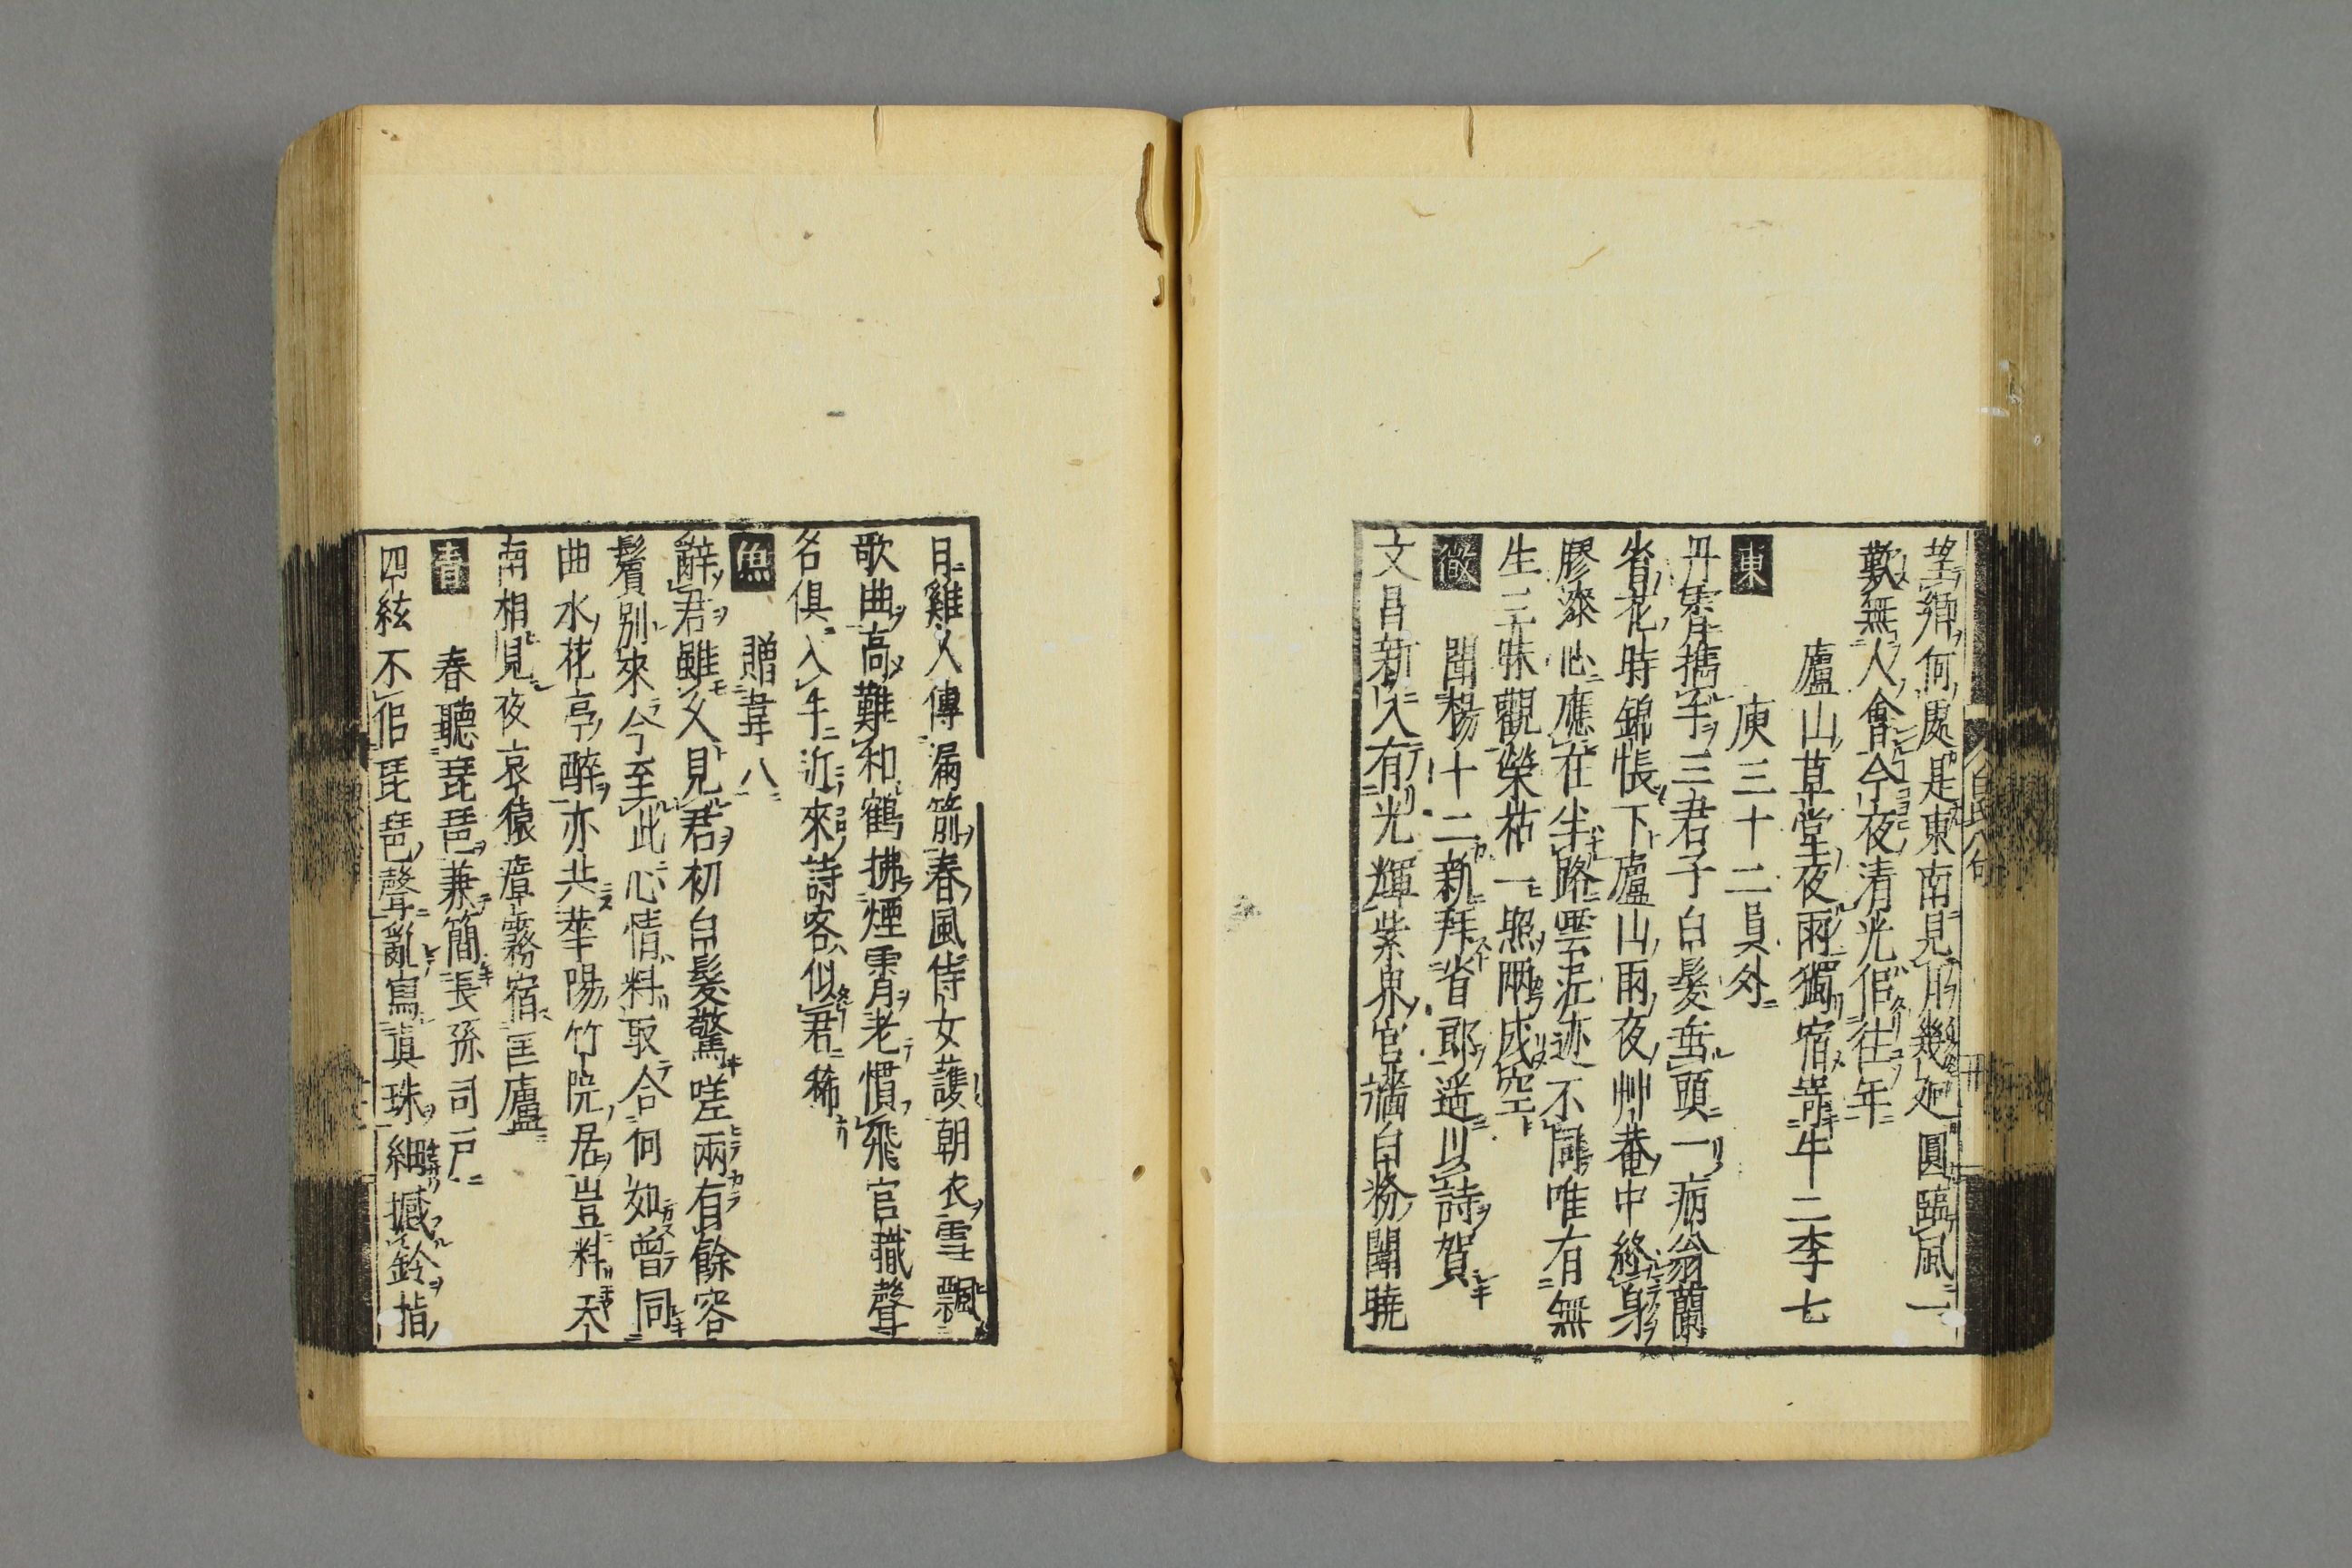 望鄉何處是東南見月幾廻圓臨風一
歎無人會今夜清光似往年
廬山草堂夜雨獨宿寄牛二李七
庾三十二員外
東
丹霄攜手三君子白髮垂頭一病翁蘭
省花時錦帳下廬山雨夜艸菴中終身
膠漆心應在半路雲泥迹不同唯有無
生三昧觀榮枯一照兩成空
微 聞楊十二新拜省郎遥以詩賀
文昌新入有光輝紫界官墻白粉闈曉
日雞人傳漏箭春風侍女護朝衣雪飄
歌曲高難和鶴拂煙霄老慣飛官職聲
名俱入手近來詩客似君稀
魚 贈韋八
辭君雖久見君初白髮驚嗟兩有餘容
鬢別來今至此心情料取合何如曾同
曲水花亭醉亦共華陽竹院居豈料天
南相見夜哀猿瘴霧宿匡廬
青 春聽琵琶兼簡長孫司戸
四絃不佀琵琶聲亂寫真珠細撼鈴指